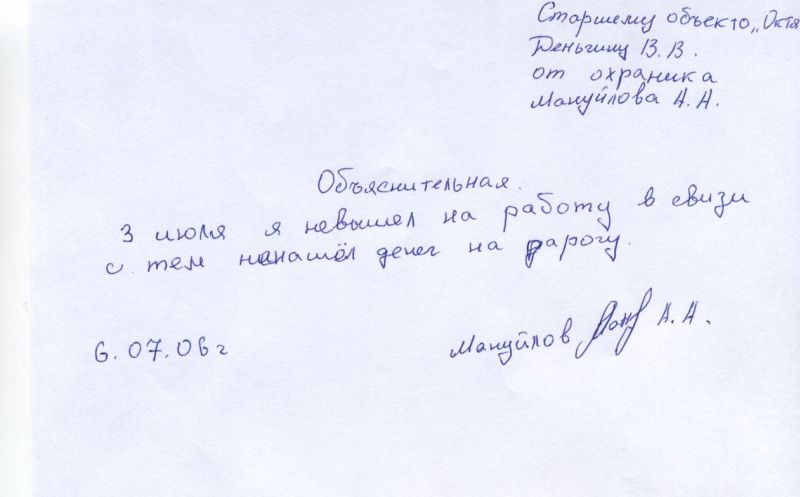 Старшему объекто „Октя
Деньгину В.В.
от охраника
Мануйлова А.А.
Объяснительная.
3 июля я невышел на работу в свизи
с тем ненашёл денег на дарогу.
6.07.06г
Мануйлов А.А.